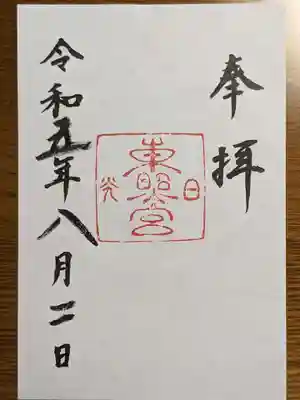 奉拝
日
東照宮
光
令和五年八月二日